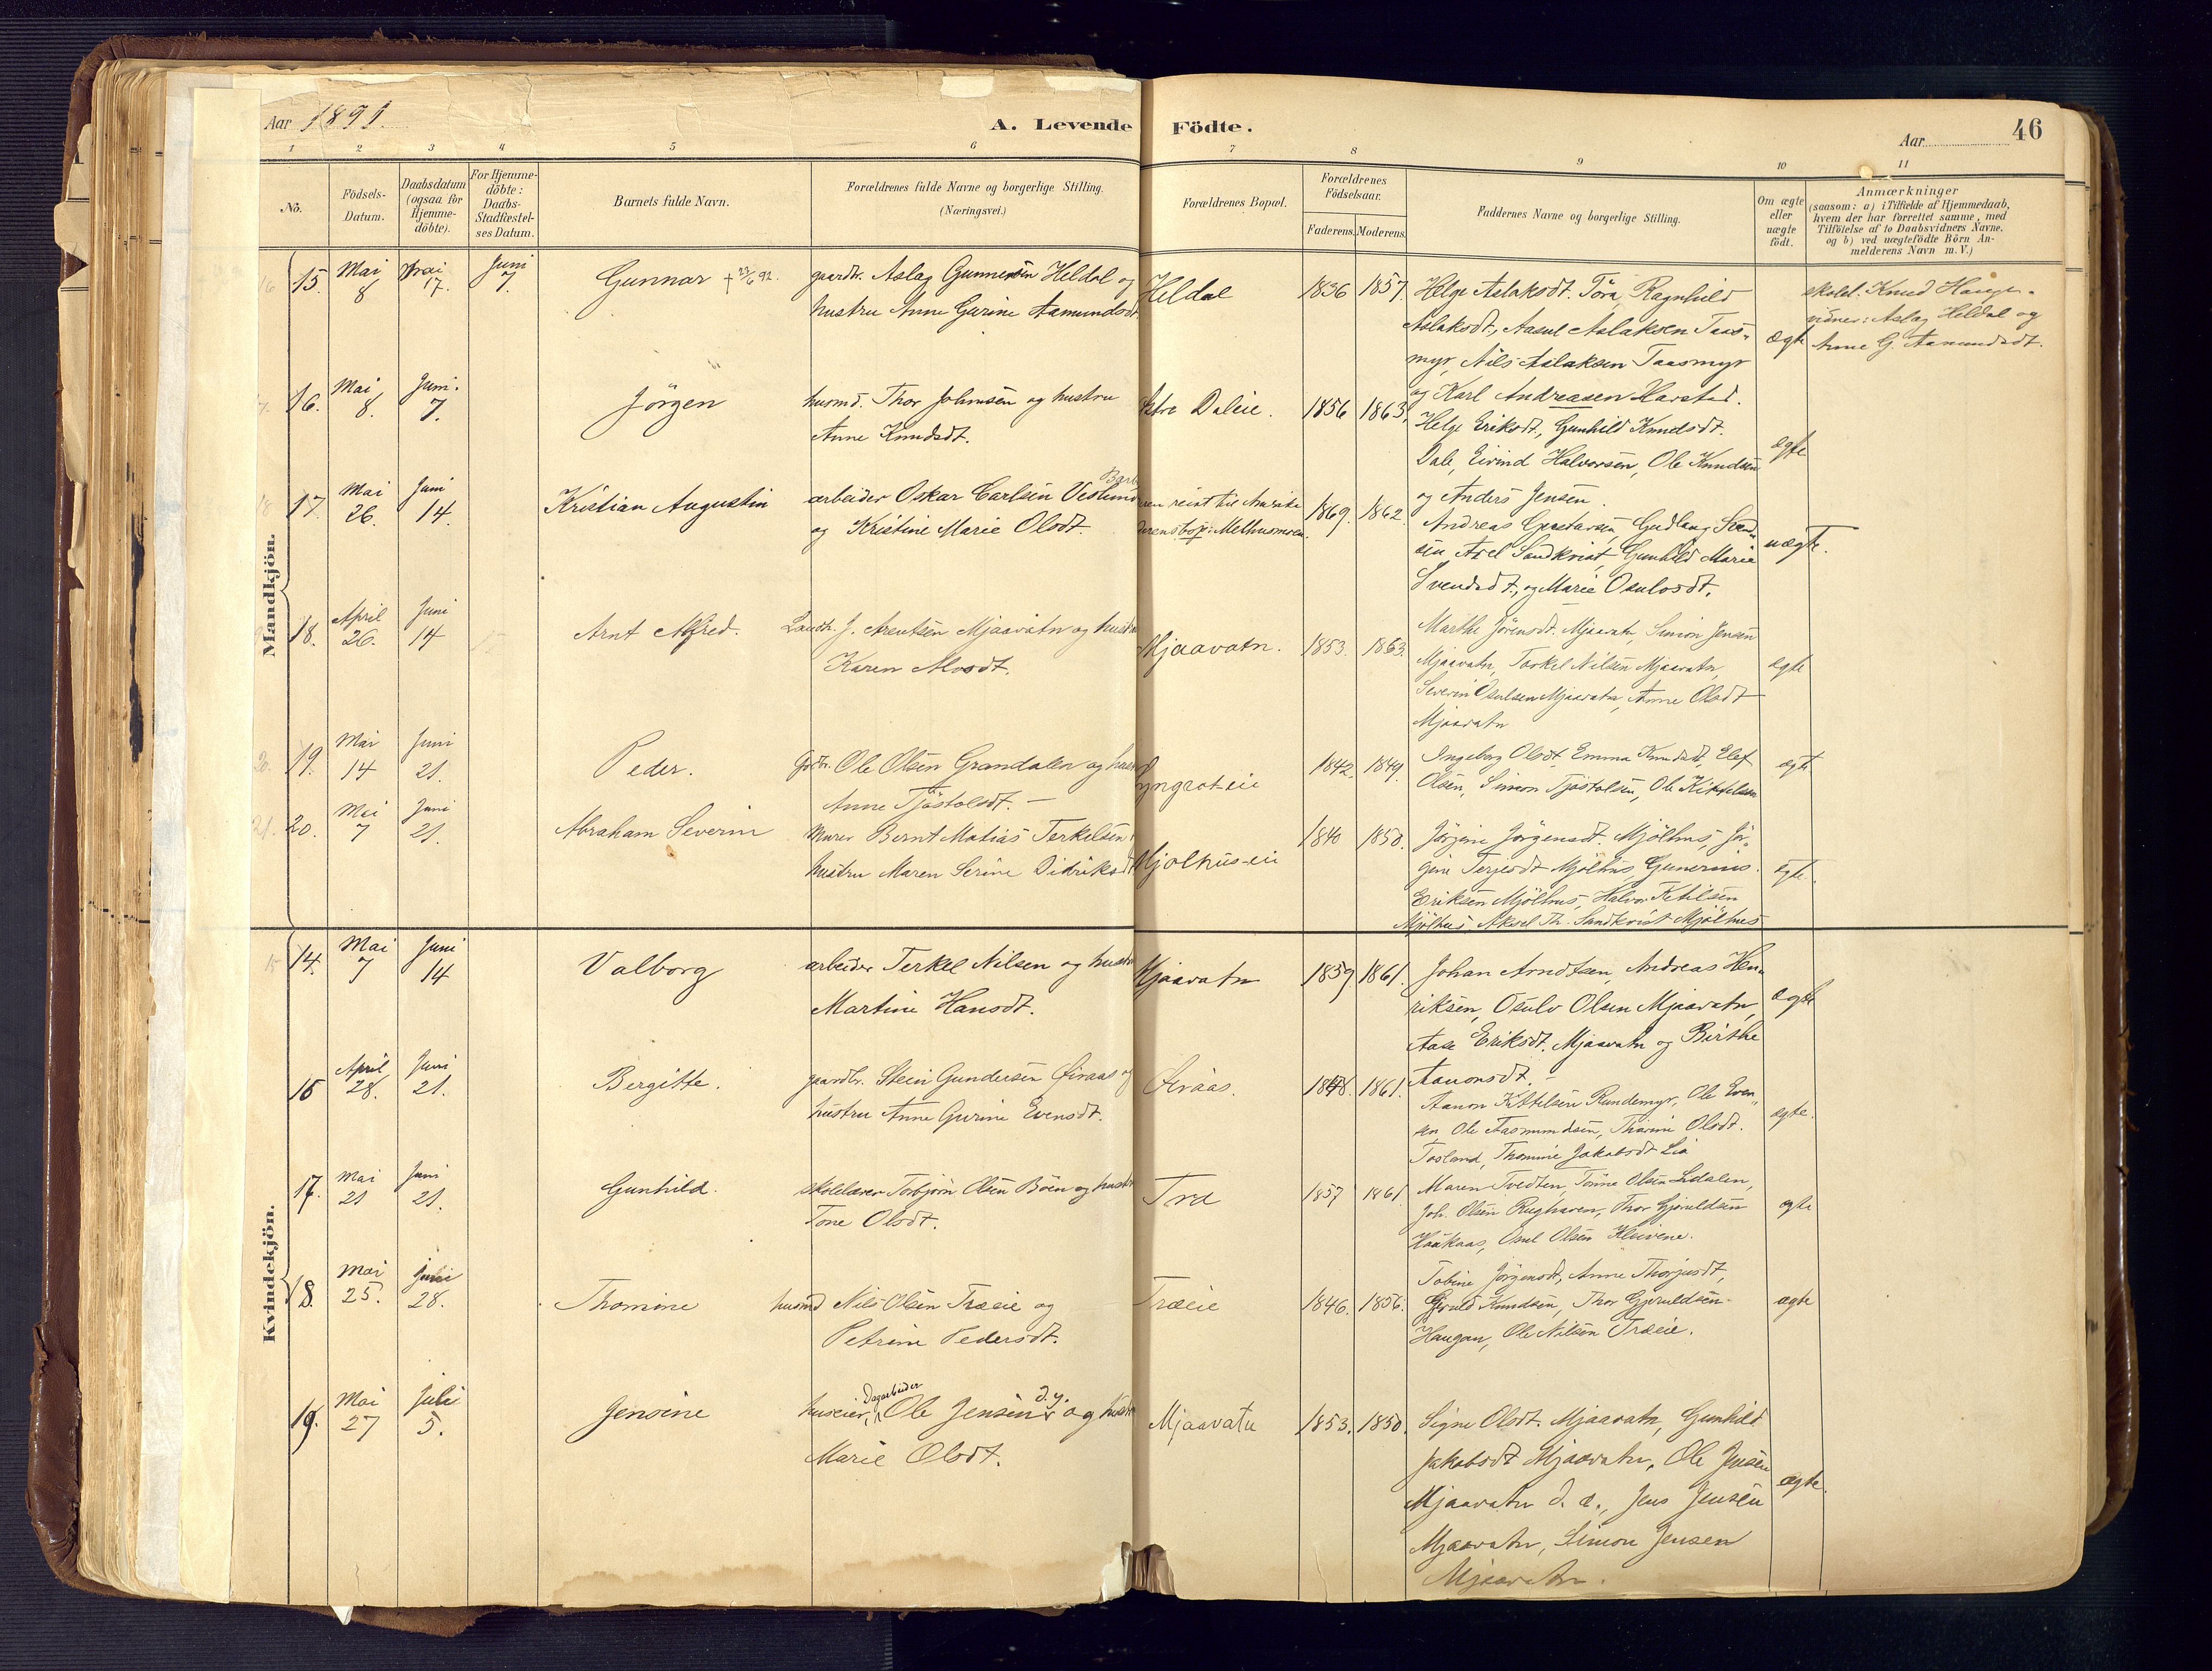 Aar 1891.
A. Levende Födte.
Aar
46
1 2 3 4 5 6 7 8 9 10 11
No.
Födsels-Datum.
Daabsdatum (ogsaa for Hjemme-döbte).
For Hjemme-döbte: Daabs-Stadfæstel-ses Datum.
Barnets fulde Navn.
Forældrenes fulde Navne og borgerlige Stilling.
(Næringsvei.)
Forældrenes Bopæl.
Forældrenes Födselsaar.
Faderens. Moderens.
Faddernes Navne og borgerlige Stilling.
Om ægte eller uægte födt.
Anmærkninger
(saasom: a) i Tilfælde af Hjemmedaab,
hvem der har forrettet samme, med
Tilföielse af to Daabsvidners Navne,
og b) ved uægtefödte Börn An-
melderens Navn m. V.)
Mandkjön.
15. Mai 8 Mai 17. Juni 7. Gunnar † 23/6 92. gaardbr. Aslag Gunnersen Heldal og
hustru Anne Gurine Aamundsdt.
Heldal 1836 1857. Helge Aslaksdt. Töra, Ragnhild
Aslaksdt., Aasul Aslaksen Taas-
myr, Nils Aslaksen Taasmyr
og Karl Andreasen Harstad.
ægte
skolel. Knud Hauge.
vidner: Aslag Heldal og
Anne G. Aamundsdt.
16. Mai 8. Juni 7. Jörgen husmd. Thor Johnsen og hustru
Anne Knudsdt.
Daleie. 1856 1863. Helge Eriksdt., Gunhild Knudsdt.
Dale, Eivind Halvorsen, Ole Knudsen
og Anders Jensen.
ægte
17. Mai 26. Juni 14. Kristian Augustin arbeider Oskar Carlsen Veslund
og Kristine Marie Olsdt.
reist til Amerika
bop: Melhusmoen. 1869. 1862. Andreas Gustavsen, Gudlaug Svend-
sen, Axel Sandkvist, Gunhild Marie
Svendsdt., og Marie Osulvsdt.
uægte.
18. April 26. Juni 14 Arnt Alfred. Landh. J. Arentsen Mjaavatn og hustru
Karen Alvsdt.
Mjaavatn. 1853. 1863. Marthe Jörensdt. Mjaavatn, Simon Jensen
Mjaavatn, Torkel Nilsen Mjaavatn,
Severin Osulsen Mjaavatn, Anne Olsdt
Mjaavatn
ægte
19. Mai 14 Juni 21. Peder. Gdbr. Ole Olsen Grandalen og hustru
Anne Tjöstolsdt. –
1842. 1849. Ingeborg Olsdt, Emma Knudsdt, Elef
Olsen, Simon Tjöstolsen, Ole Kittelsen
ægte
20. Mai 7 Juni 21. Abraham Severin Murer Bernt Matias Terkelsen
hustru Maren Serine Didriksdt
Mjolhus-eie 1840 1850. Jörgine Jörgensdt. Mjölhus, Jör-
gine Terjesdt Mjölhus, Gunerius
Eriksen Mjölhus, Halvor Ketilsen
Mjölhus Aksel Th. Sandkvist Mjölhus
ægte.
Kvindekjön.
14. Mai 7 Juni 14 Valborg arbeider Terkel Nilsen og hustru
Martine Hansdt.
Mjaavatn 1859 1861. Johan Arndtsen, Andreas Hen-
riksen, Osulv Olsen Mjaavatn,
Aase Eriksdt. Mjaavatn og Birthe
Aanonsdt. –
ægte
15 April 28. Juni 21. Bergitte. gaardbr. Stein Gundersen Öiraas og
hustru Anne Gurine Evensdt.
Öiraas. 1848. 1861. Aanon Kittelsen Rundemyr, Ole Even-
sen Ole Aasmundsen, Thomine Olsdt.
Tosland, Thomine Jakobsdt Lia
ægte.
17. Mai 21 Juni 21. Gunhild. skolelærer Torbjörn Olsen Böen og hustr
Tone Olsdt.
Træ 1857 1861 Maren Tvedten, Tönne Olsen Lidalen,
Joh. Olsen Rughaven, Thor Gjeruldsen
Haukaas, Osul Olsen Kleivene.
ægte
18. Mai 25. Juni 28. Thomine husmd Nils Olsen Træeie og
Petrine Pedersdt.
Træeie 1846. 1856. Tobine Jörgensdt, Anne Thorjusdt,
Gjeruld Knudsen, Thor Gjeruldsen
Haugan, Ole Nilsen Træeie.
ægte
19. Mai 27 Juli 5. Jensine huseier, Dagarbeider Ole Jensen d. y. og hustr
Marie Olsdt.
Mjaavatn 1853. 1850. Signe Olsdt. Mjaavatn, Gunhild
Jakobsdt Mjaavatn, Ole Jensen
Mjaavatn d. æ., Jens Jensen
Mjaavatn, Simon Jensen
Mjaavatn.
ægte.